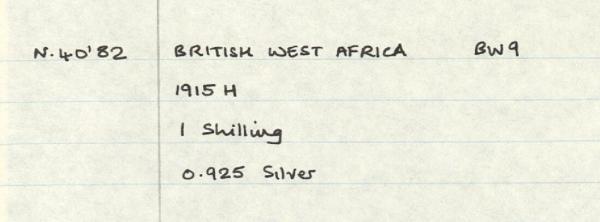 N.40'82 BRITISH WEST AFRICA BW9
1915 H
1 Shilling
0.925 Silver